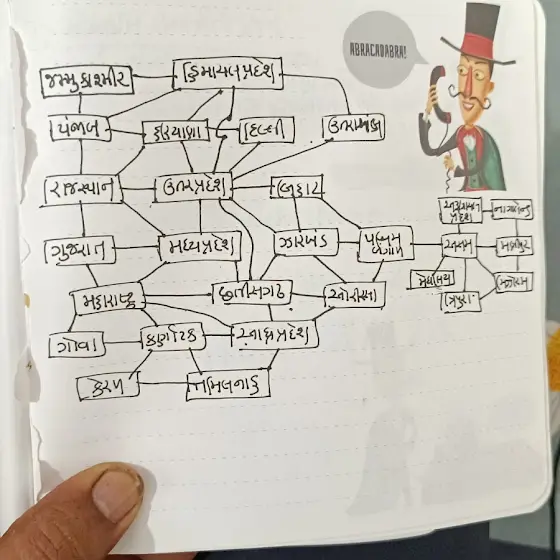 ABRACADABRA!
જમ્મુ કાશ્મીર
હિમાચલ પ્રદેશ
પંજાબ
હરિયાણા
દિલ્હી
રાજસ્થાન
ઉત્તરપ્રદેશ
બિહાર
નાગાલેન્ડ
ગુજરાત
મધ્યપ્રદેશ
ઝારખંડ
પશ્ચિમ
બંગાળ
આસામ
મણિપુર
મેઘાલય
મહારાષ્ટ્ર
છત્તીસગઢ
ઓરીસા
ત્રિપુરા
મિઝોરમ
ગોવા
કર્ણાટક
આંધ્રપ્રદેશ
કેરળ
તમિલનાડુ